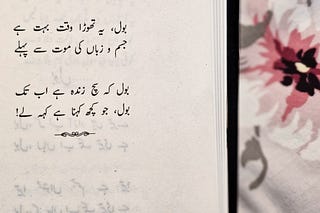 بول، یہ تھوڑا وقت بہت ہے
جسم و زباں کی موت سے پہلے
بول کہ سچ زندہ ہے اب تک
بول، جو کچھ کہنا ہے کہہ لے!